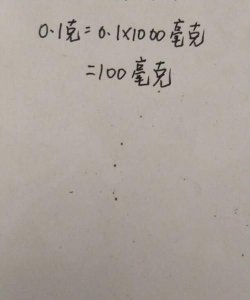 0.1克=0.1×1000毫克
=100毫克